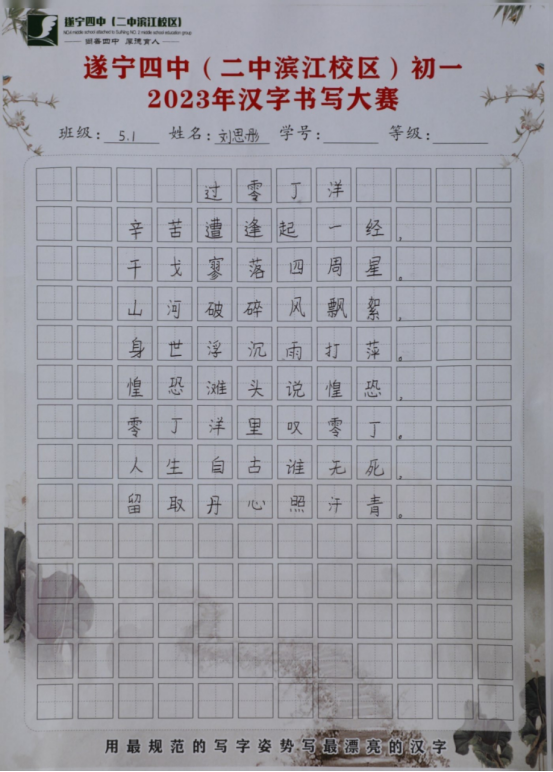 遂宁四中（二中滨江校区）
崇善四中 厚德育人
遂宁四中（二中滨江校区）初一
2023年汉字书写大赛
班级：5.1 姓名：刘思彤 学号： 等级：
过零丁洋
辛苦遭逢起一经，
干戈寥落四周星。
山河破碎风飘絮，
身世浮沉雨打萍。
惶恐滩头说惶恐，
零丁洋里叹零丁。
人生自古谁无死，
留取丹心照汗青。
用最规范的写字姿势写最漂亮的汉字